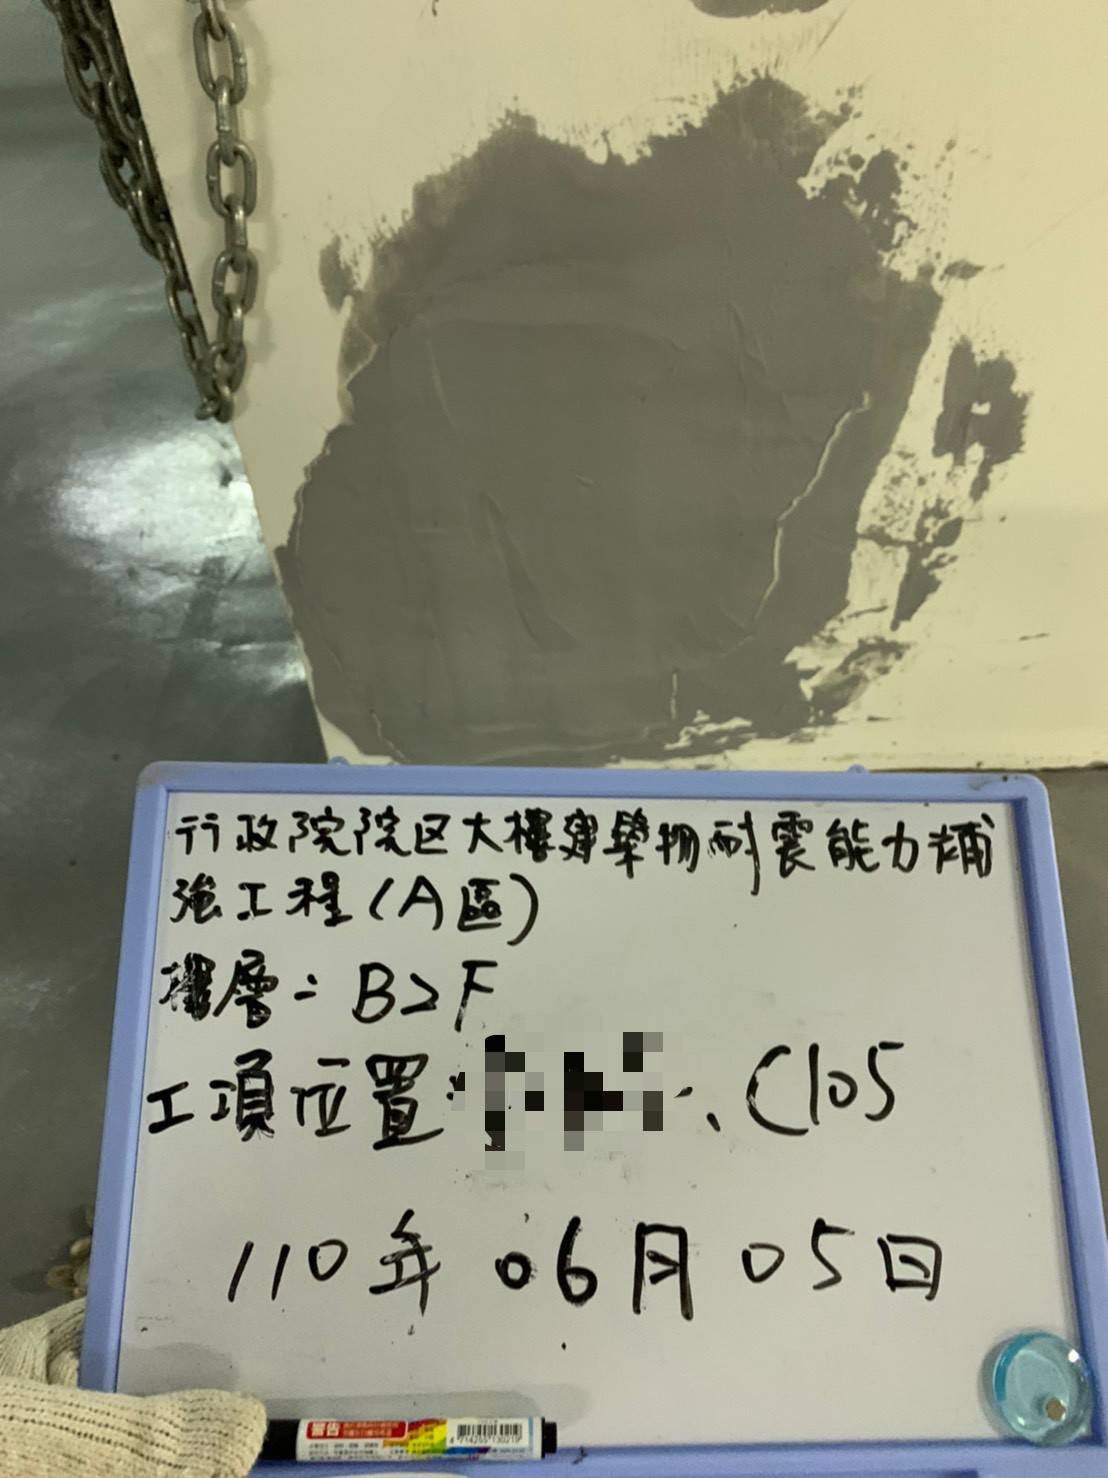 行政院院区大樓建築物耐震能力補
強工程(A區)
樓層：B2F
工項位置：、C105
110年06月05日
警告
4714255130219